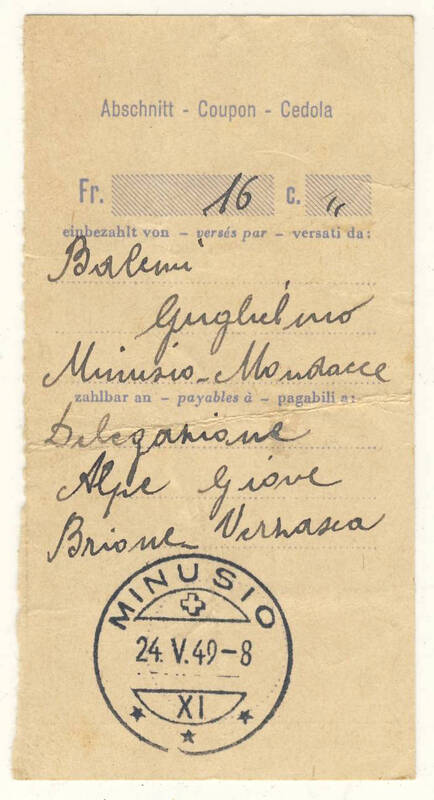 Abschnitt - Coupon - Cedola
Fr. 16 c. "
einbezahlt von – versés par – versati da:
Balemi
Guglielmo
Minusio-Mondacce
zahlbar an – payables à – pagabili a:
Delegazione
Alpe Giove
Brione Verzasca
MINUSIO
24.V.49-8
XI